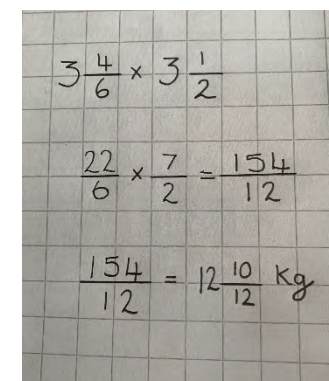 3 4/6 × 3 1/2
22/6 × 7/2 = 154/12
154/12 = 12 10/12 Kg